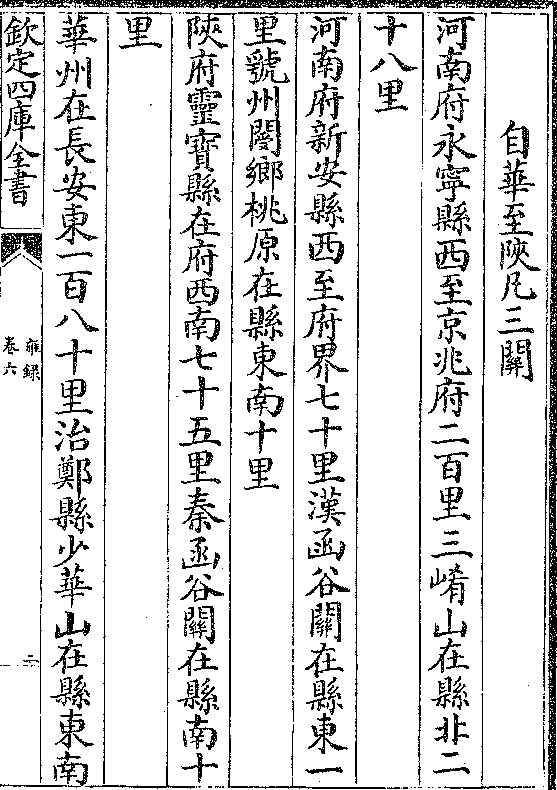 自華至陜凡三關
河南府永寧縣西至京兆府二百里三崤山在縣北二
十八里
河南府新安縣西至府界七十里漢函谷關在縣東一
里虢州閿鄉桃原在縣東南十里
陜府靈寶縣在府西南七十五里秦函谷關在縣南十
里
華州在長安東一百八十里治鄭縣少華山在縣東南
欽定四庫全書
雍録
卷六
二